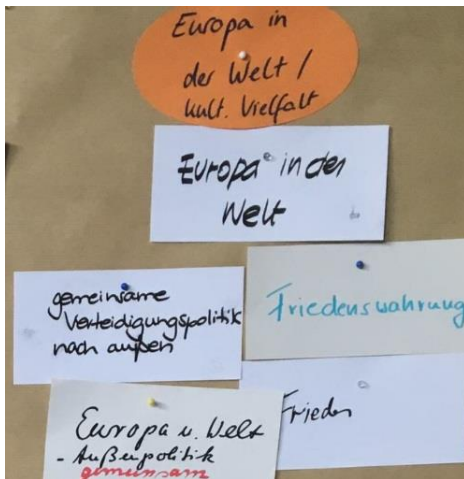 Europa in
der Welt /
kult. Vielfalt
Europa in der
Welt
gemeinsame
Verteidigungspolitik
nach außen
Friedenswahrung
Europa u. Welt
- Außenpolitik
gemeinsam
Frieden